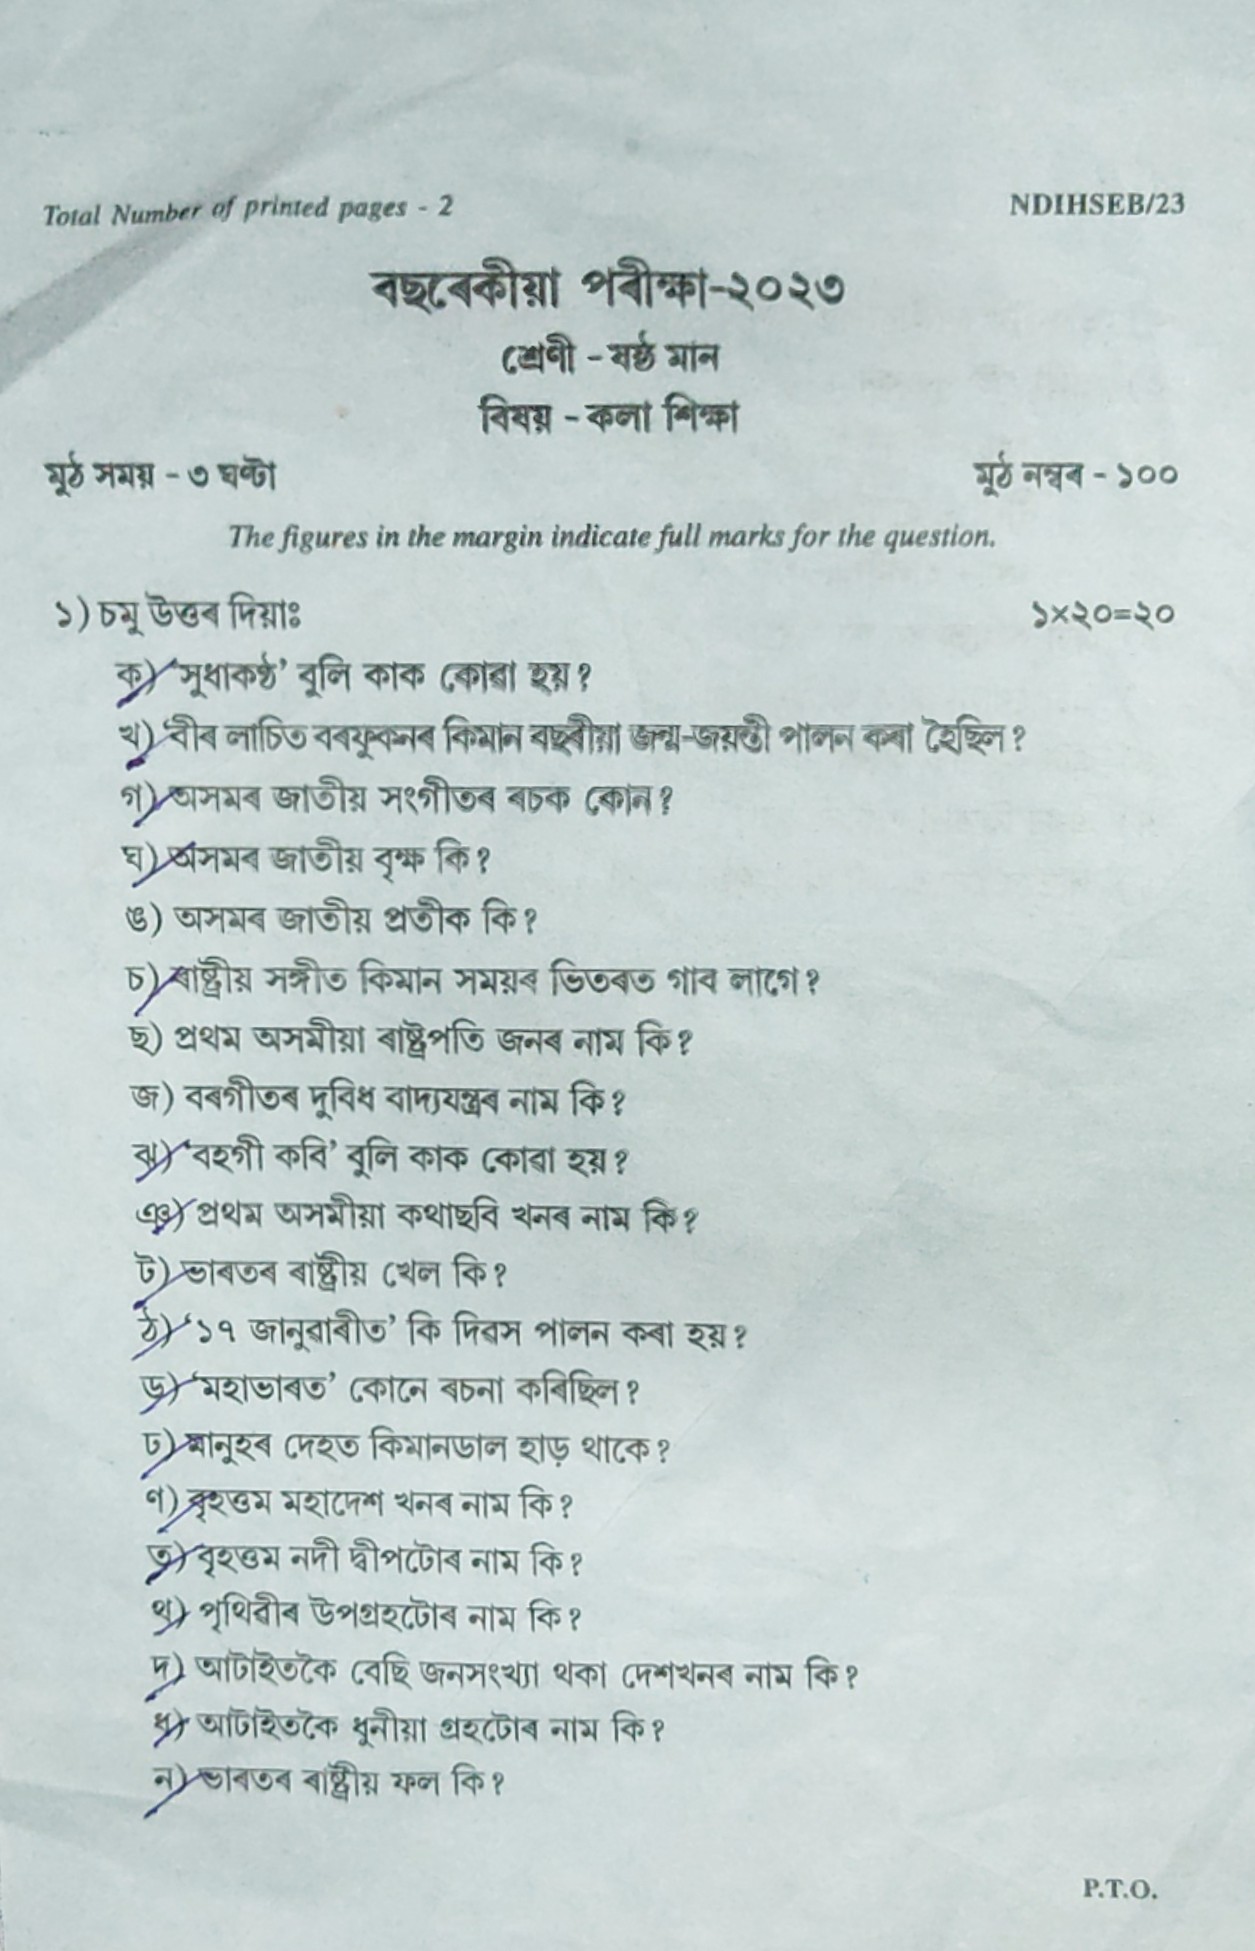 Total Number of printed pages - 2
NDIHSEB/23
বছৰেকীয়া পৰীক্ষা-২০২৩
শ্ৰেণী - ষষ্ঠ মান
বিষয় - কলা শিক্ষা
মুঠ সময় - ৩ ঘণ্টা
মুঠ নম্বৰ - ১০০
The figures in the margin indicate full marks for the question.
১) চমু উত্তৰ দিয়াঃ
১×২০=২০
ক) 'সুধাকণ্ঠ' বুলি কাক কোৱা হয়?
খ) 'বীৰ লাচিত বৰফুকনৰ কিমান বছৰীয়া জন্ম-জয়ন্তী পালন কৰা হৈছিল?
গ) অসমৰ জাতীয় সংগীতৰ ৰচক কোন?
ঘ) অসমৰ জাতীয় বৃক্ষ কি?
ঙ) অসমৰ জাতীয় প্ৰতীক কি?
চ) ৰাষ্ট্ৰীয় সঙ্গীত কিমান সময়ৰ ভিতৰত গাব লাগে?
ছ) প্ৰথম অসমীয়া ৰাষ্ট্ৰপতি জনৰ নাম কি?
জ) বৰগীতৰ দুবিধ বাদ্যযন্ত্ৰৰ নাম কি?
ঝ) 'বহগী কবি' বুলি কাক কোৱা হয়?
ঞ) প্ৰথম অসমীয়া কথাছবি খনৰ নাম কি?
ট) ভাৰতৰ ৰাষ্ট্ৰীয় খেল কি?
ঠ) '১৭ জানুৱাৰীত' কি দিৱস পালন কৰা হয়?
ড) 'মহাভাৰত' কোনে ৰচনা কৰিছিল?
ঢ) মানুহৰ দেহত কিমানডাল হাড় থাকে?
ণ) বৃহত্তম মহাদেশ খনৰ নাম কি?
ত) বৃহত্তম নদী দ্বীপটোৰ নাম কি?
থ) পৃথিৱীৰ উপগ্ৰহটোৰ নাম কি?
দ) আটাইতকৈ বেছি জনসংখ্যা থকা দেশখনৰ নাম কি?
ধ) আটাইতকৈ ধুনীয়া গ্ৰহটোৰ নাম কি?
ন) ভাৰতৰ ৰাষ্ট্ৰীয় ফল কি?
P.T.O.